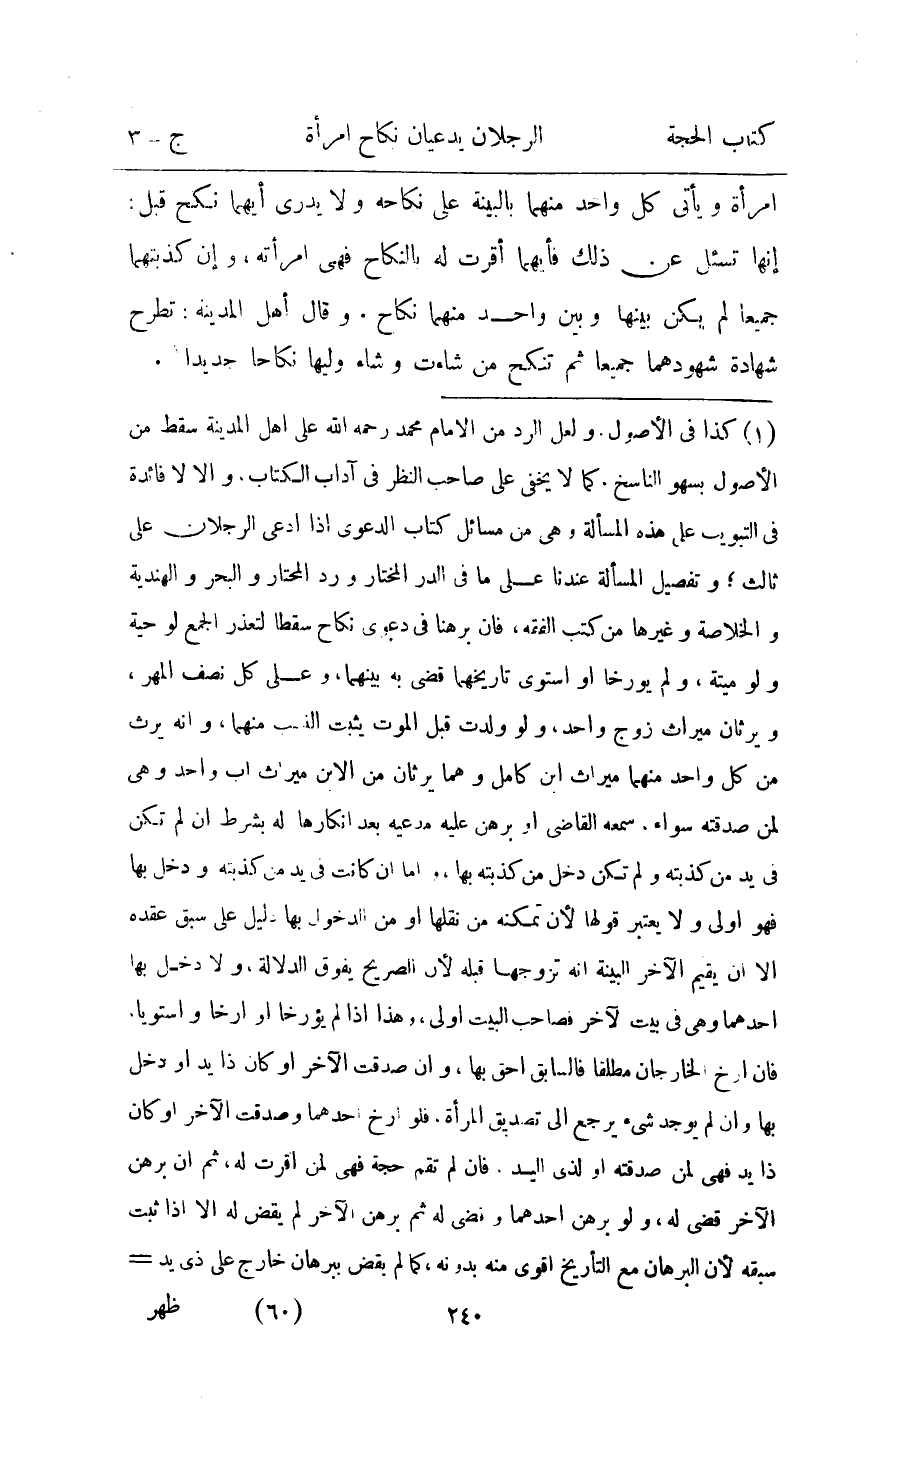 كتاب الحجة الرجلان يدعيان نكاح امرأة ج - ٣
امرأة و يأتى كل واحد منهما بالبينة على نكاحه و لا يدرى أيهما نكح قبل :
إنها تسئل عن ذلك فأيهما أقرت له بالنكاح فهى امرأته ، و إن كذبتهما
جميعا لم يكن بينها و بين واحد منهما نكاح . و قال أهل المدينة : تطرح
شهادة شهودهما جميعا ثم تنكح من شاءت و شاء وليها نكاحا جديدا .
(١) كذا فى الأصول . و لعل الرد من الامام محمد رحمه الله على اهل المدينة سقط من
الأصول بسهو الناسخ . كما لا يخفى على صاحب النظر فى آداب الكتاب . و الا لا فائدة
فى التبويب على هذه المسألة و هى من مسائل كتاب الدعوى اذا ادعى الرجلان على
ثالث ؛ و تفصيل المسألة عندنا على ما فى الدر المختار و رد المحتار و البحر و الهندية
و الخلاصة و غيرها من كتب الفقه ، فان برهنا فى دعوى نكاح سقطا لتعذر الجمع لو حية
و لو ميتة ، و لم يورخا او استوى تاريخهما قضى به بينهما ، و على كل نصف المهر ،
و يرثان ميراث زوج واحد ، و لو ولدت قبل الموت يثبت النسب منهما ، و انه يرث
من كل واحد منهما ميراث ابن كامل و هما يرثان من الابن ميراث اب واحد و هى
لمن صدقته سواء . سمعه القاضى او برهن عليه مدعيه بعد انكارها له بشرط ان لم تكن
فى يد من كذبته و لم تكن دخل من كذبته بها ، و اما ان كانت فى يد من كذبته و دخل بها
فهو اولى و لا يعتبر قولها لأن تمكنه من نقلها او من الدخول بها دليل على سبق عقده
الا ان يقيم الآخر البينة انه تزوجها قبله لأن الصريح يفوق الدلالة ، و لا دخل بها
احدهما وهى فى بيت لآخر فصاحب البيت اولى ، و هذا اذا لم يؤرخا او ارخا و استويا .
فان ارخ الخارجان مطلقا فالسابق احق بها ، و ان صدقت الآخر او كان ذا يد او دخل
بها و ان لم يوجد شىء يرجع الى تصديق المرأة . فلو ارخ احدهما و صدقت الآخر او كان
ذا يد فهى لمن صدقته او لذى اليد . فان لم تقم حجة فهى لمن اقرت له ، ثم ان برهن
الآخر قضى له ، و لو برهن احدهما و قضى له ثم برهن الآخر لم يقض له الا اذا ثبت
سبقه لأن البرهان مع التأريخ اقوى منه بدونه ، كما لم يقض ببرهان خارج على ذى يد =
٢٤٠ (٦٠) ظهر